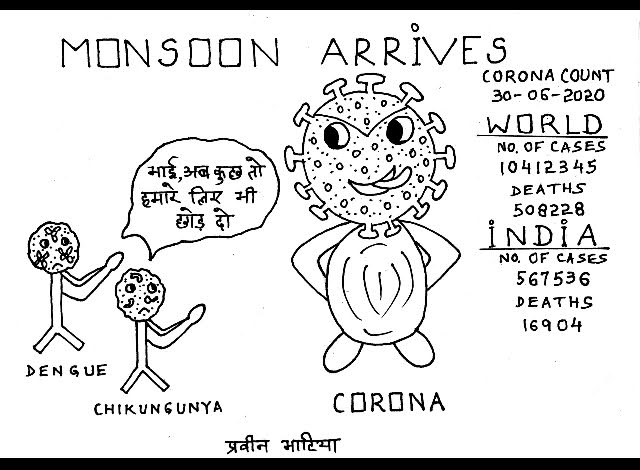 MONSOON ARRIVES
CORONA COUNT
30-06-2020
WORLD
NO. OF CASES
10412345
DEATHS
508228
INDIA
NO. OF CASES
567536
DEATHS
16904
भाई, अब कुछ तो
हमारे लिए भी
छोड़ दो
DENGUE
CHIKUNGUNYA
CORONA
प्रवीन भाटिया